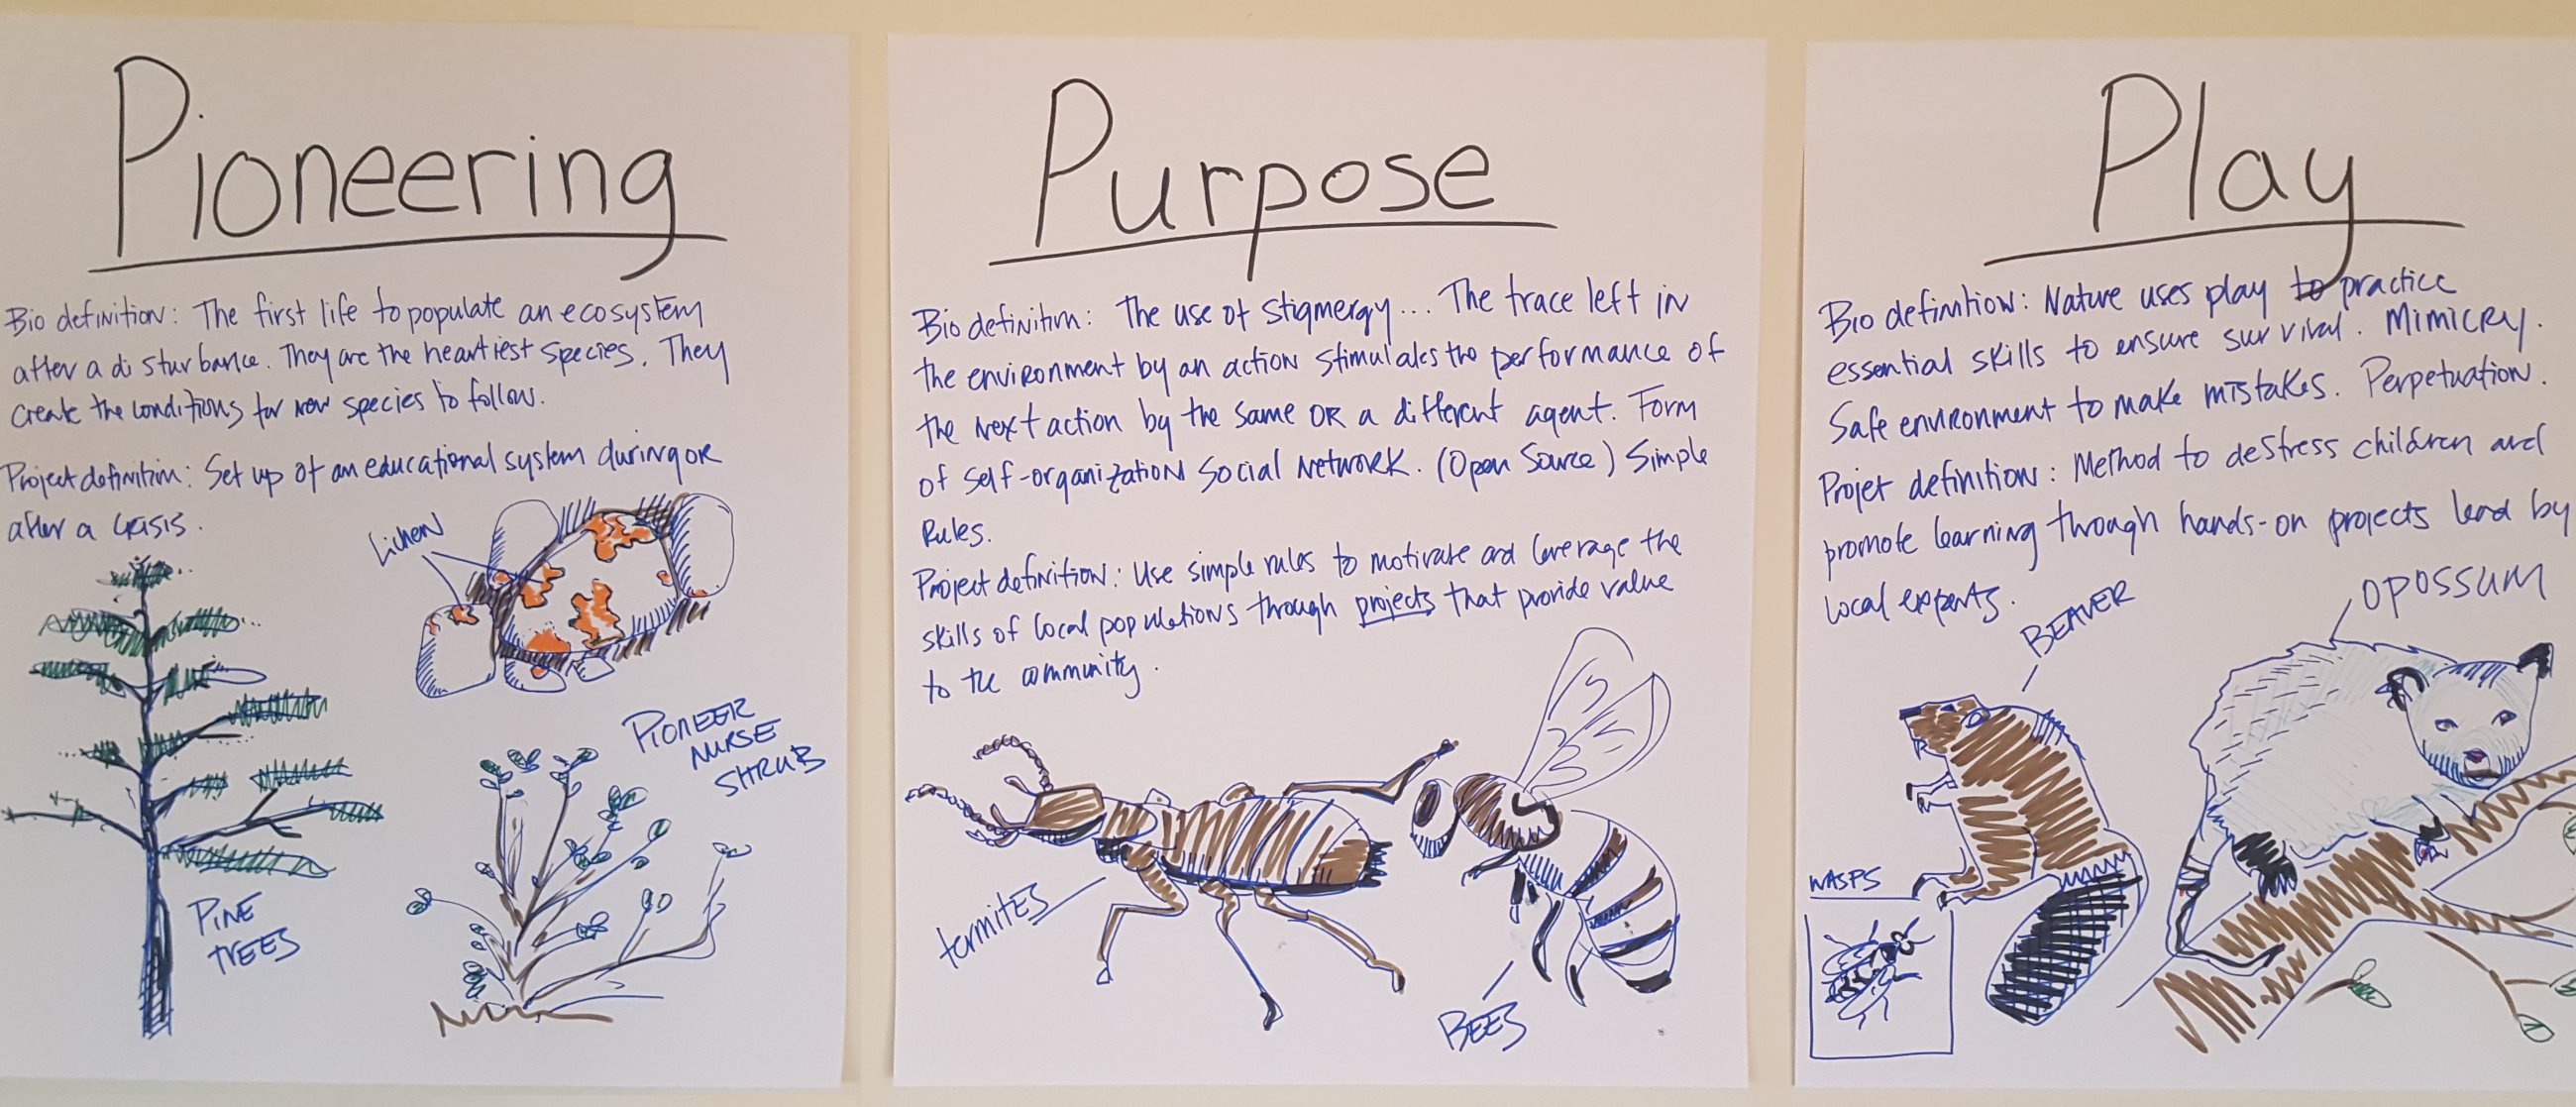 Pioneering
Bio definition: The first life to populate an ecosystem
after a disturbance. They are the heartiest species. They
create the conditions for new species to follow.
Project definition: Set up of an educational system during OR
after a crisis.
Lichen
PIONEER
NURSE
SHRUB
PINE
TREES
Purpose
Bio definition: The use of stigmergy... The trace left in
the environment by an action stimulates the performance of
the next action by the same OR a different agent. Form
of self-organization social network. (Open Source) Simple
Rules.
Project definition: Use simple rules to motivate and leverage the
skills of local populations through projects that provide value
to the community.
termites
BEES
Play
Bio definition: Nature uses play to practice
essential skills to ensure survival. Mimicry.
Safe environment to make mistakes. Perpetuation.
Projet definition: Method to destress children and
promote learning through hands-on projects lead by
local experts.
BEAVER
OPOSSUM
WASPS